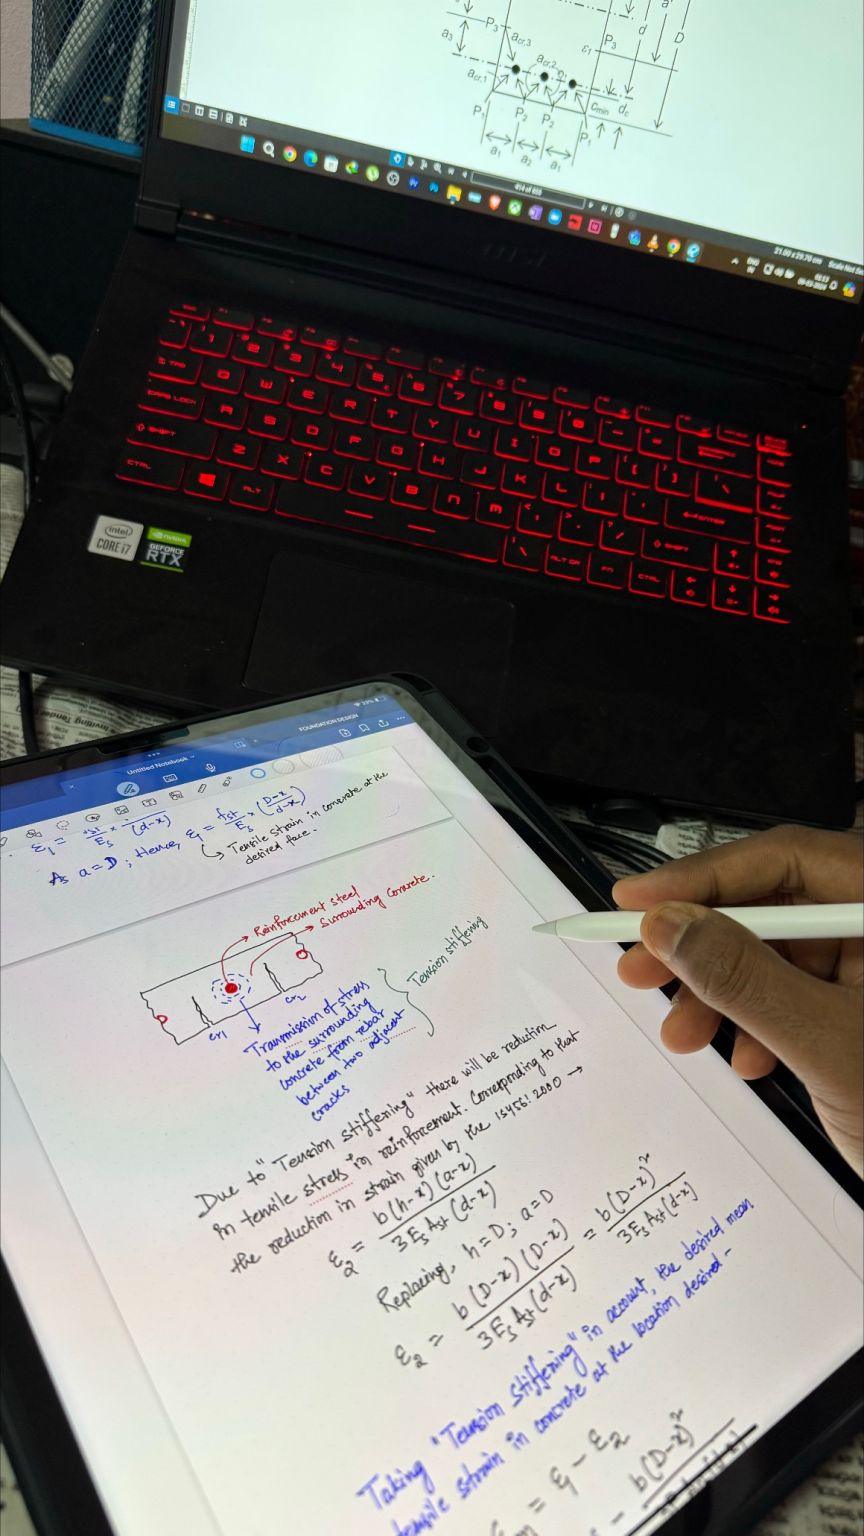 a₃
P₃
a_cr,3
a_cr,1
a_cr,2
P₁
P₂
P₂
P₁
a₁
a₂
a₁
ε₁
P₃
d
a'
D
C_min
d_c
414 of 655
21.00 x 29.70 cm
intel
CORE i7
NVIDIA
GEFORCE
RTX
TAB
CAPS LOCK
SHIFT
CTRL
ALT
Q W E R T Y U I O P
A S D F G H J K L
Z X C V B N M
ENTER
SHIFT
ALT GR
FN
CTRL
Inviting Tender
33%
FOUNDATION DESIGN
Untitled Notebook
ε₁ = fst/Es × /(d-x)
As a = D ; Hence, ε₁ = fst/Es × (D-x/d-x)
Tensile strain in concrete at the
desired face.
Reinforcement steel
Surrounding concrete.
cr₁
cr₂
Transmission of stress
to the surrounding
concrete from rebar
between two adjacent
cracks
Tension stiffening
Due to "Tension stiffening" there will be reduction
in tensile stress in reinforcement. Corresponding to that
the reduction in strain given by the IS456:2000 →
ε₂ = b(h-x)(a-x) / 3EsAst(d-x)
Replacing, h=D; a=D
ε₂ = b(D-x)(D-x) / 3EsAst(d-x) = b(D-x)² / 3EsAst(d-x)
Taking "Tension Stiffening" in account, the desired mean
tensile strain in concrete at the location desired -
= ε₁ - ε₂
- b(D-x)²